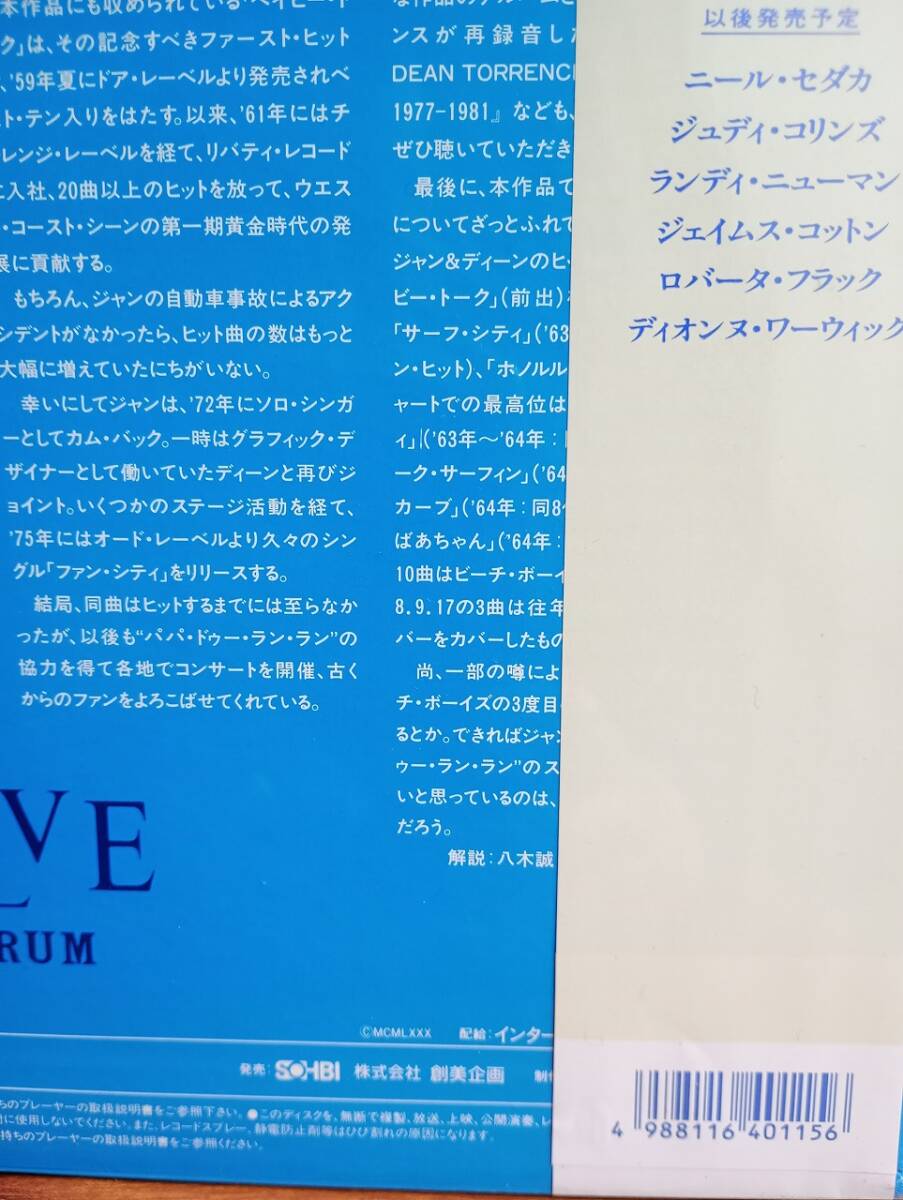 本作品にも収められている「ベイビー・ト
ク」は、その記念すべきファースト・ヒット
、'59年夏にドア・レーベルより発売されベ
スト・テン入りをはたす。以来、'61年にはチ
ャレンジ・レーベルを経て、リバティ・レコード
に入社、20曲以上のヒットを放って、ウエス
・コースト・シーンの第一期黄金時代の発
展に貢献する。
もちろん、ジャンの自動車事故によるアク
シデントがなかったら、ヒット曲の数はもっと
大幅に増えていたにちがいない。
幸いにしてジャンは、'72年にソロ・シンガ
ーとしてカム・バック。一時はグラフィック・デ
ザイナーとして働いていたディーンと再びジ
ョイント。いくつかのステージ活動を経て、
'75年にはオード・レーベルより久々のシン
グル「ファン・シティ」をリリースする。
結局、同曲はヒットするまでには至らなか
ったが、以後も"パパ・ドゥー・ラン・ラン"の
協力を得て各地でコンサートを開催、古く
からのファンをよろこばせてくれている。
ンスが再録音し
DEAN TORRENC
1977-1981』なども、
ぜひ聴いていただき
最後に、本作品で
についてざっとふれて
ジャン&ディーンのヒ
ビー・トーク」(前出)
「サーフ・シティ」('63
ン・ヒット)、「ホノルル
ャートでの最高位は
ィ」('63年〜'64年:
ーク・サーフィン」('64
カーブ」('64年:同8
ばあちゃん」('64年:
10曲はビーチ・ボーイ
8.9.17の3曲は往年
バーをカバーしたもの
尚、一部の噂によ
チ・ボーイズの3度目
るとか。できればジャン
ゥー・ラン・ラン"のス
いと思っているのは、
だろう。
解説:八木誠
VE
RUM
©MCMLXXX 配給:インター
発売: SOHBI 株式会社 創美企画 制作
ちのプレーヤーの取扱説明書をご参照下さい。●このディスクを、無断で複製、放送、上映、公開演奏、レ
に使用しないでください。また、レコードスプレー、静電防止剤等はひび割れの原因になります。
持ちのプレーヤーの取扱説明書をご参照ください。
以後発売予定
ニール・セダカ
ジュディ・コリンズ
ランディ・ニューマン
ジェイムス・コットン
ロバータ・フラック
ディオンヌ・ワーウィック
4 988116 401156